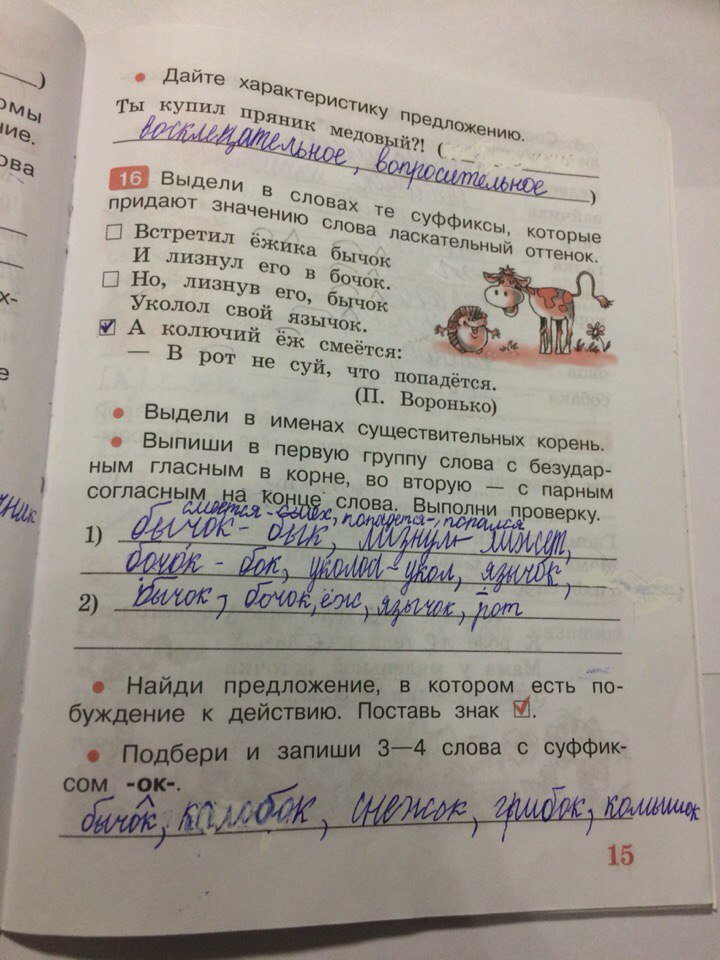 )
омы
ние.
ова
х-
е
чник
• Дайте характеристику предложению.
Ты купил пряник медовый?! (
восклецательное, вопросительное )
16 Выдели в словах те суффиксы, которые
придают значению слова ласкательный оттенок.
Встретил ёжика бычок
И лизнул его в бочок.
Но, лизнув его, бычок
Уколол свой язычок.
А колючий ёж смеётся:
— В рот не суй, что попадётся.
(П. Воронько)
• Выдели в именах существительных корень.
• Выпиши в первую группу слова с безудар-
ным гласным в корне, во вторую — с парным
согласным на конце слова. Выполни проверку.
смеётся - смех, попадётся-, попался
1) бычок - бык, лизнул - лижет,
бочок - бок, уколол - укол, язычок,
2) бычок, бочок, ёж, язычок, рот
• Найди предложение, в котором есть по-
буждение к действию. Поставь знак ☑.
• Подбери и запиши 3—4 слова с суффик-
сом -ок-.
бычок, колобок, снежок, грибок, камышок
15